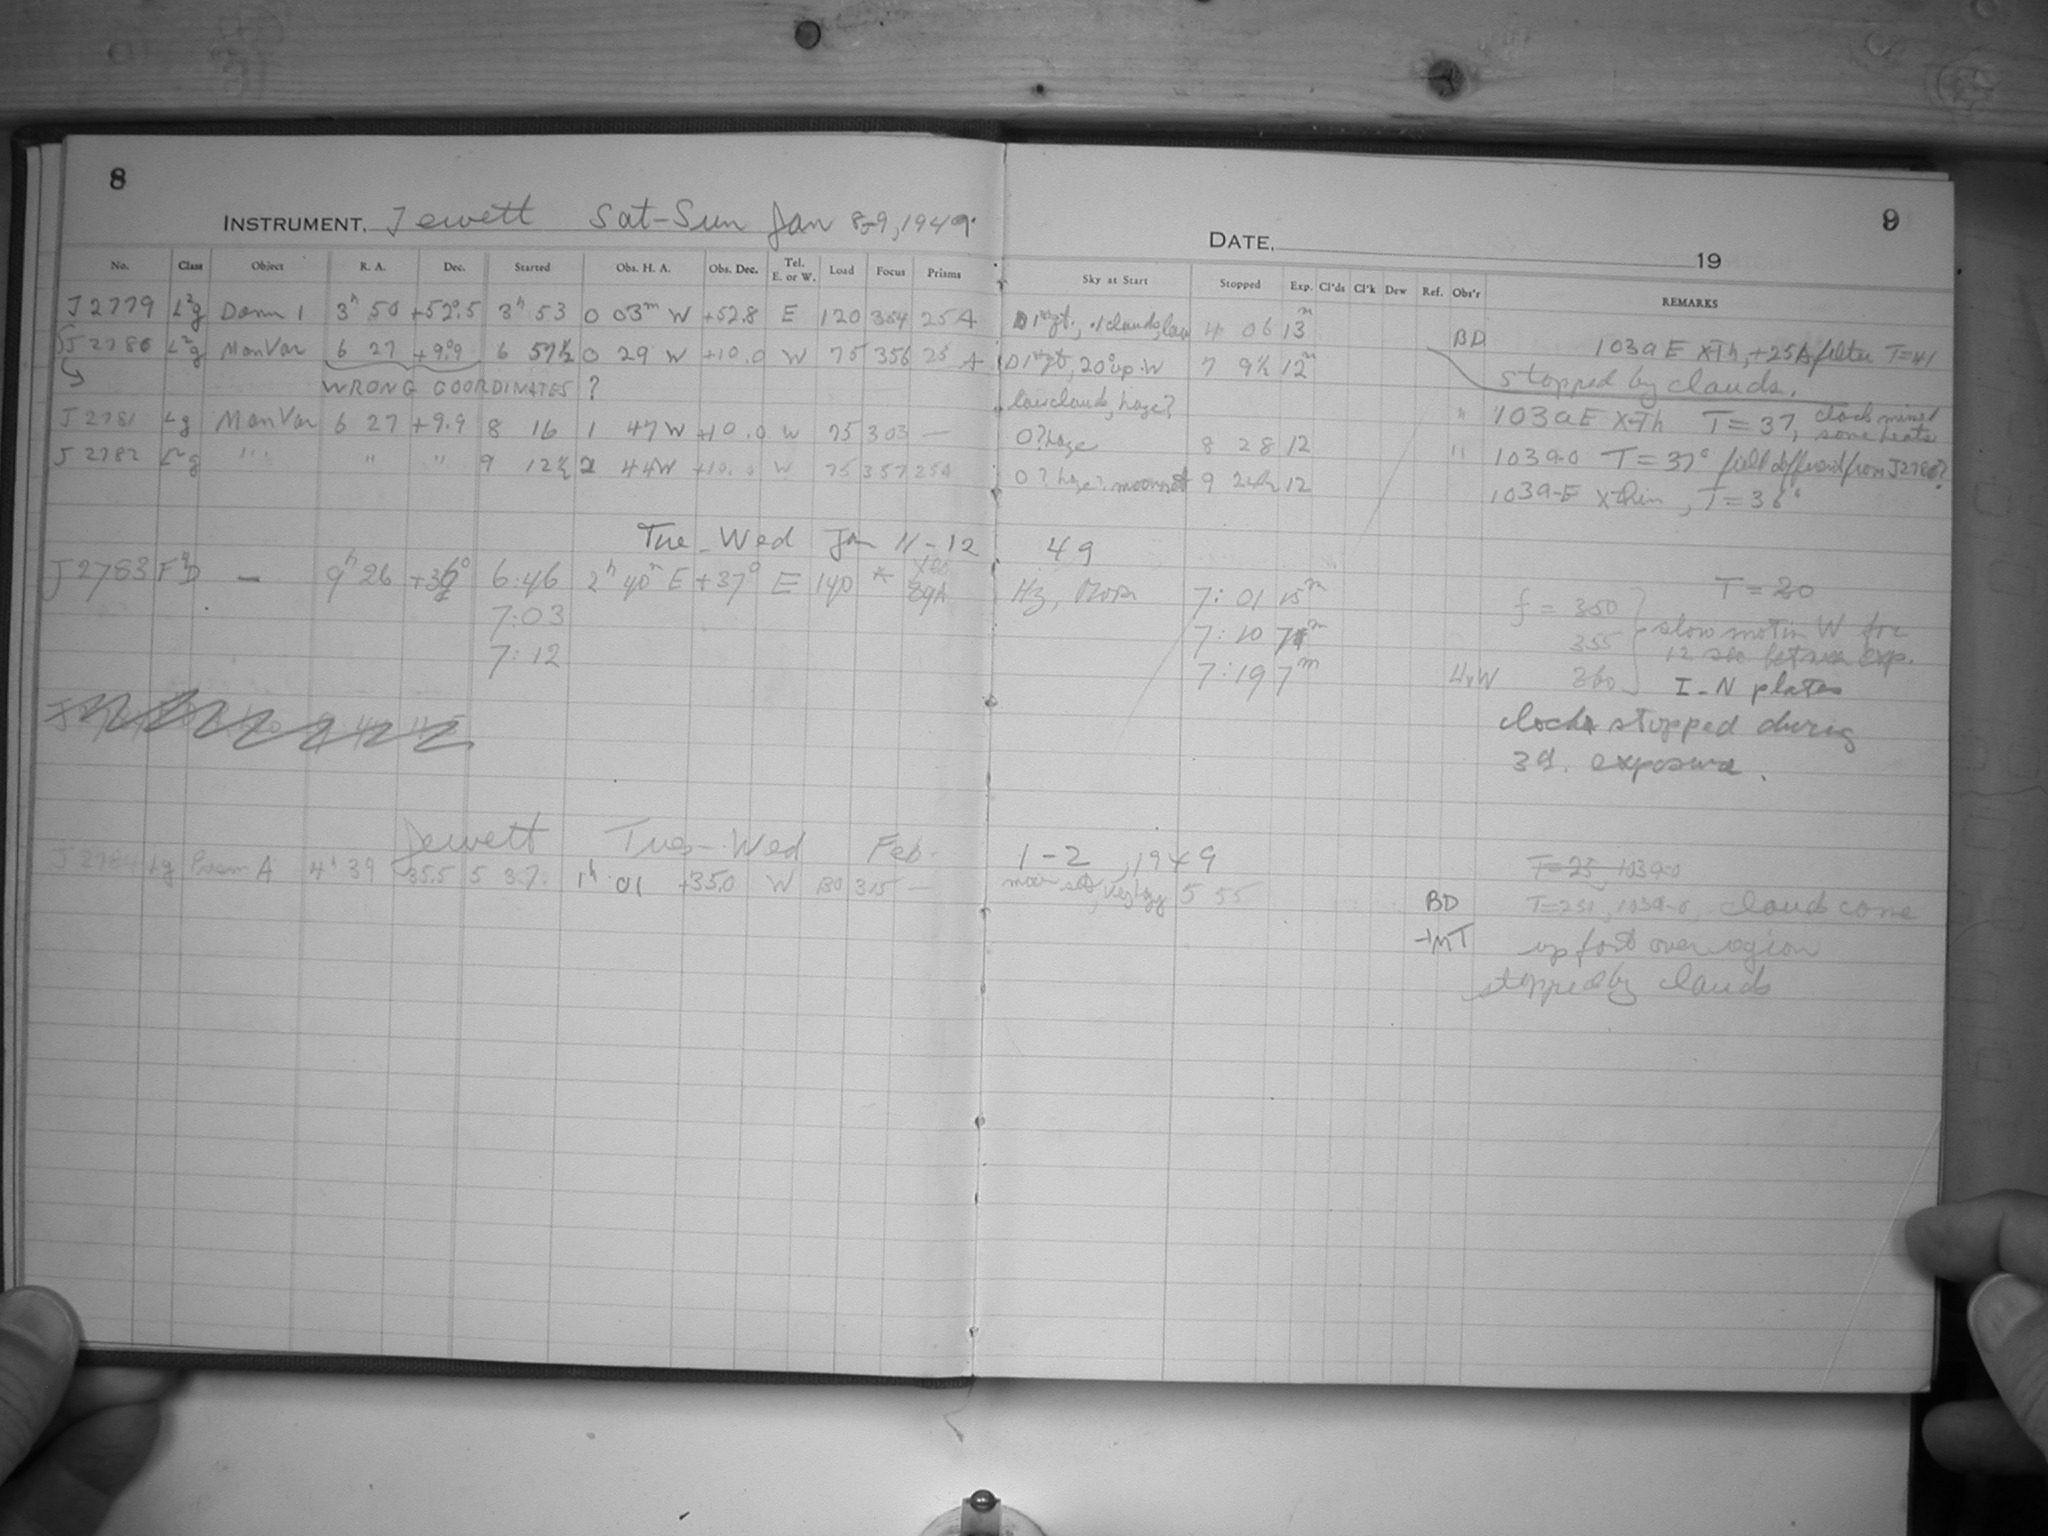 8
INSTRUMENT. Jewett Sat-Sun Jan 8-9, 1949.
No. Class Object R. A. Dec. Started Obs. H. A. Obs. Dec. Tel. E. or W. Load Focus Prisms
J 2779 L²g Dom 1 3ʰ 50 +52°.5 3ʰ 53 0 03ᵐ W +52.8 E 120 354 25 A
J 2780 L²g MonVar 6 27 +9°.9 6 57½ 0 29 W +10.0 W 75 356 25 A
WRONG COORDINATES ?
J 2781 Lg MonVar 6 27 +9.9 8 16 1 47 W +10.0 W 75 303 —
J 2782 L²g " " " " 9 12½ 2 44 W +10.0 W 75 357 25A
Tue-Wed Jan 11-12
J 2783 — 9ʰ 26 6:46 2ʰ 40ᵐ E +37° E 140 *
7:03
7:12
Jewett Tues-Wed Feb.
J 2784 Lg A 4ʰ 39 35.5 5 37 1ʰ 01 +35.0 W 130 315 —
9
DATE, 19
Sky at Start Stopped Exp. Cl'ds Cl'k Dew Ref. Obs'r REMARKS
clouds, low 4 06 13ᵐ BD 103a E XTh, +25A filter T=41
20° up W 7 9½ 12ᵐ stopped by clouds.
low clouds, haze? " 103aE X-Th T=37, clock missed some beats
0? haze 8 28 12 " 103a-0 T=37° field different from J2780?
0? haze? moonset 9 24½ 12 103a-E Xthin, T=36°
49
Hz, Moon 7:01 15ᵐ f = 350 T=20
7:10 7ᵐ 355 slow motion W for
12 sec between exp.
7:19 7ᵐ 360 I-N plates
clock stopped during
3d. exposure.
1-2, 1949
T=25, 103a-0
moon set, 5 55 BD 103a-0, clouds come
+MT up fast over region
stopped by clouds